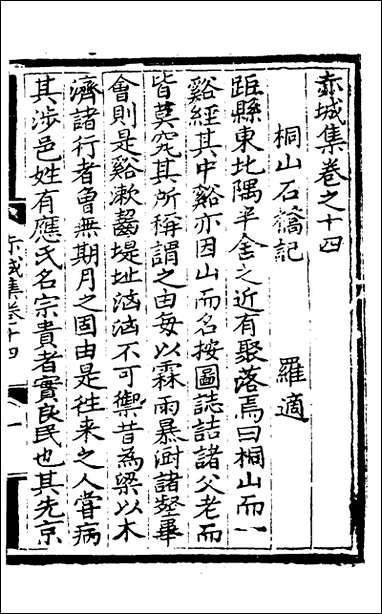 赤城集卷之十四
桐山石橋記 羅適
距縣東北隅半舍之近有聚落焉曰桐山而一
谿經其中谿亦因山而名按圖誌詰諸父老而
皆莫究其所稱謂之由每以霖雨暴澍諸壑畢
會則是谿漱齧堤址洶洶不可禦昔為梁以木
濟諸行者曾無期月之固由是往来之人嘗病
其涉邑姓有應氏名宗貴者實良民也其先京
赤城集卷十四 一